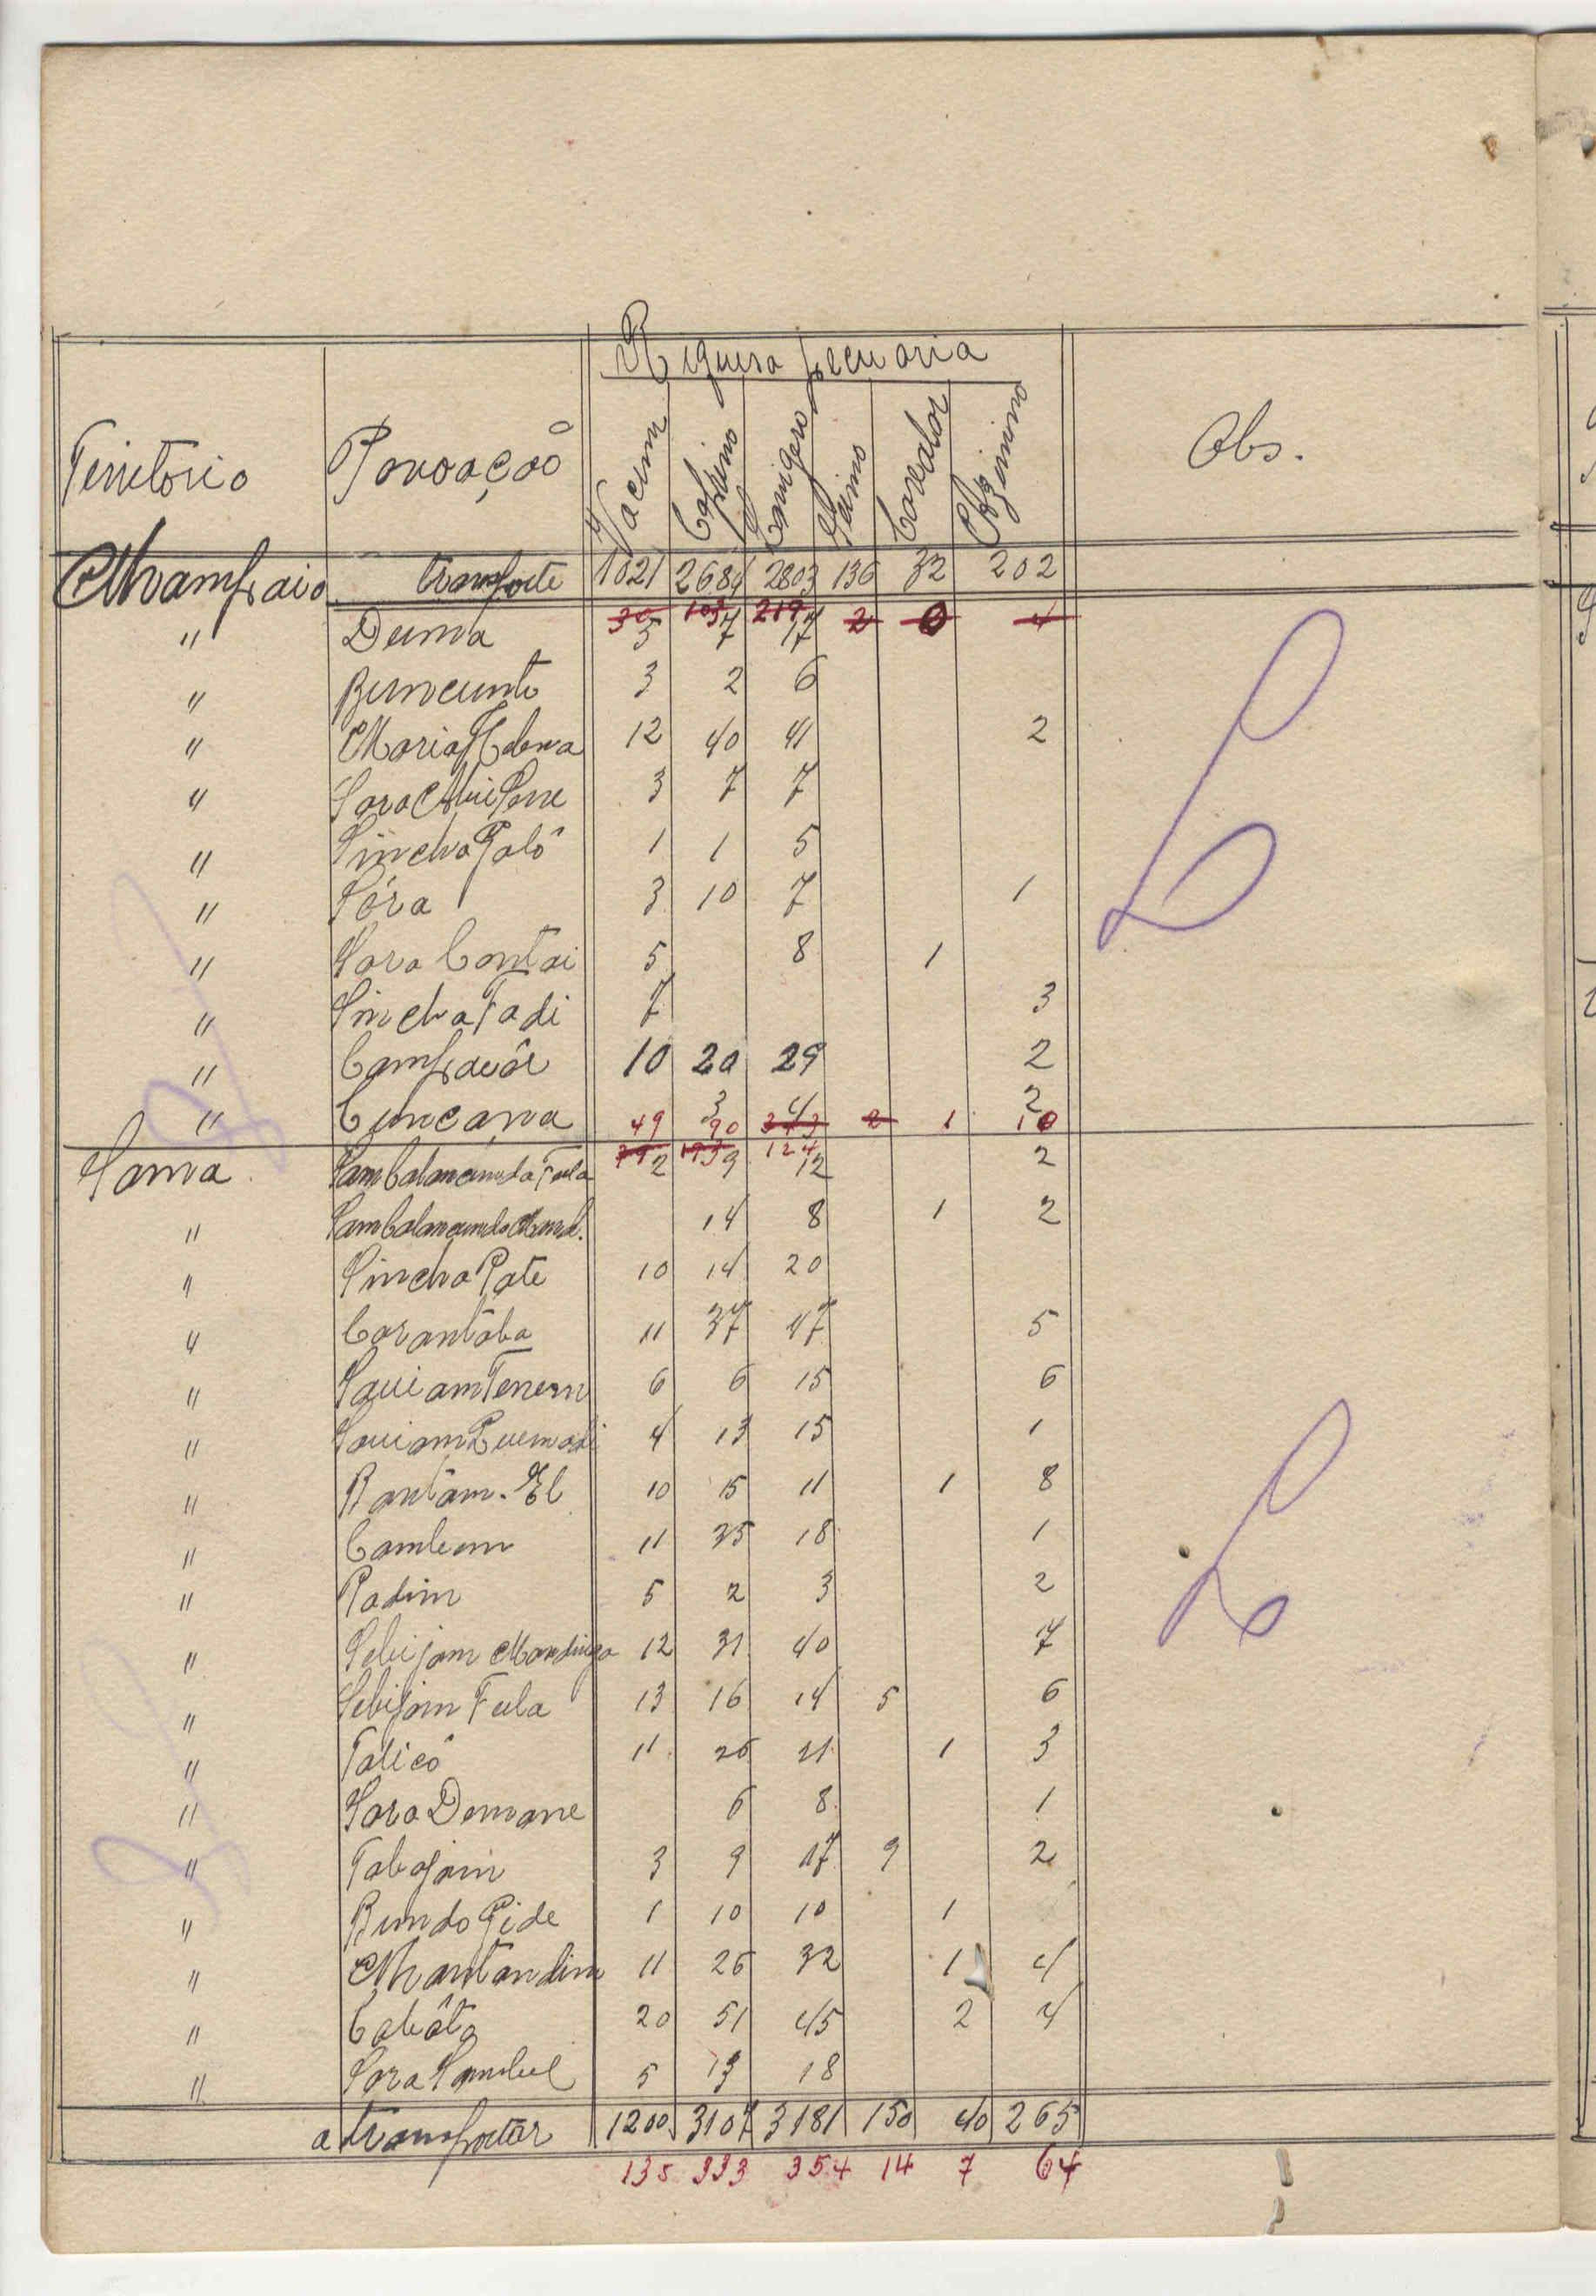 Riquesa pecuaria
Territorio Povoação Vacum Caprino Lanigero Suino Cavalar Azinino Obs.
Mansaio transporte 1021 2684 2803 136 32 202
30 103 219 2 0 4
" Duma 5 7 17
" Buncunto 3 2 6
" Maria 12 40 41 2
" Sara 3 7 7
" Sincha 1 1 5
" Sára 3 10 7 1
" Sara Contai 5 8 1
" Sincha Tadi 7 3
" 10 20 29 2
" Cuncana 3 4 2
49 90 343 2 1 10
124
Sama Sambalancunda Fula 2 9 12 2
" Sambalancunda Mand. 14 8 1 2
" Sincha Pate 10 14 20
" Carantába 11 37 47 5
" Sauiam Tenem 6 6 15 6
" Sauiam 4 13 15 1
" Bantam-El 10 15 11 1 8
" Cambem 11 35 18 1
" Padim 5 2 3 2
" Sebijam Mandinga 12 31 40 7
" Sebijam Fula 13 16 14 5 6
" Talicó 11 26 21 1 3
" Sara Demane 6 8 1
" Tabajam 3 9 17 9 2
" Bundo Pide 1 10 10 1
" Mantandim 11 26 32 1 4
" Cabáto 20 51 45 2 4
" Sara Sambel 5 13 18
a transportar 1200 3107 3181 150 40 265
135 333 354 14 7 64